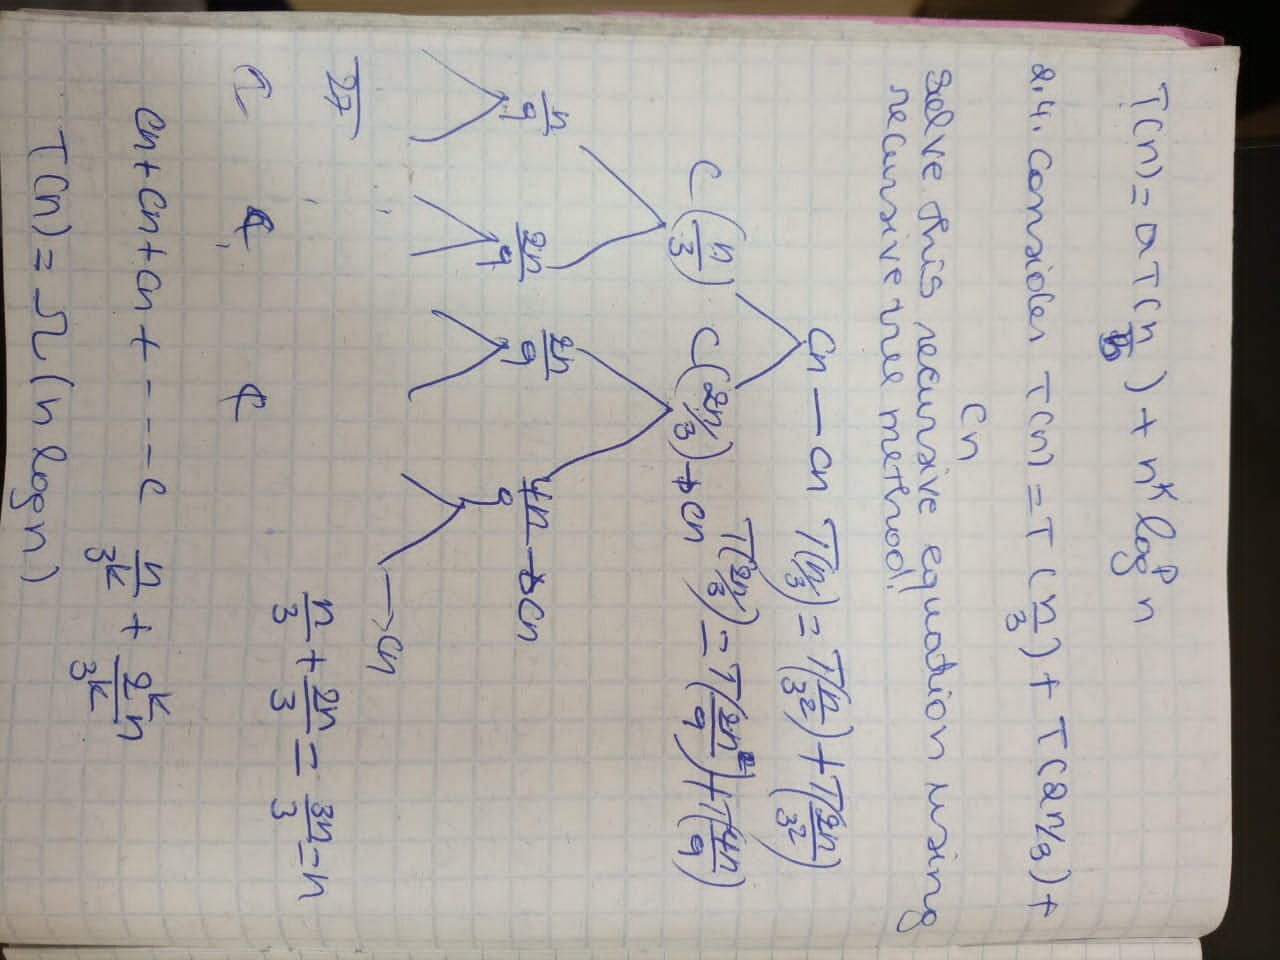 T(n) = aT(n/b) + n^k log^p n
2.4. Consider T(n) = T(n/3) + T(2n/3) +
cn
Solve this recursive equation using
recursive tree method!
cn — cn T(n/3) = T(n/3²) + T(2n/3²)
C(n/3) C(2n/3) → cn T(2n/3) = T(2n/9) + T(4n/9)
n/9 2n/9 2n/9 4n/9 → cn
→ cn
27 n/3 + 2n/3 = 3n/3 = n
c c c
cn + cn + cn + - - - c n/3^k + 2^k n/3^k
T(n) = Ω(n log n)